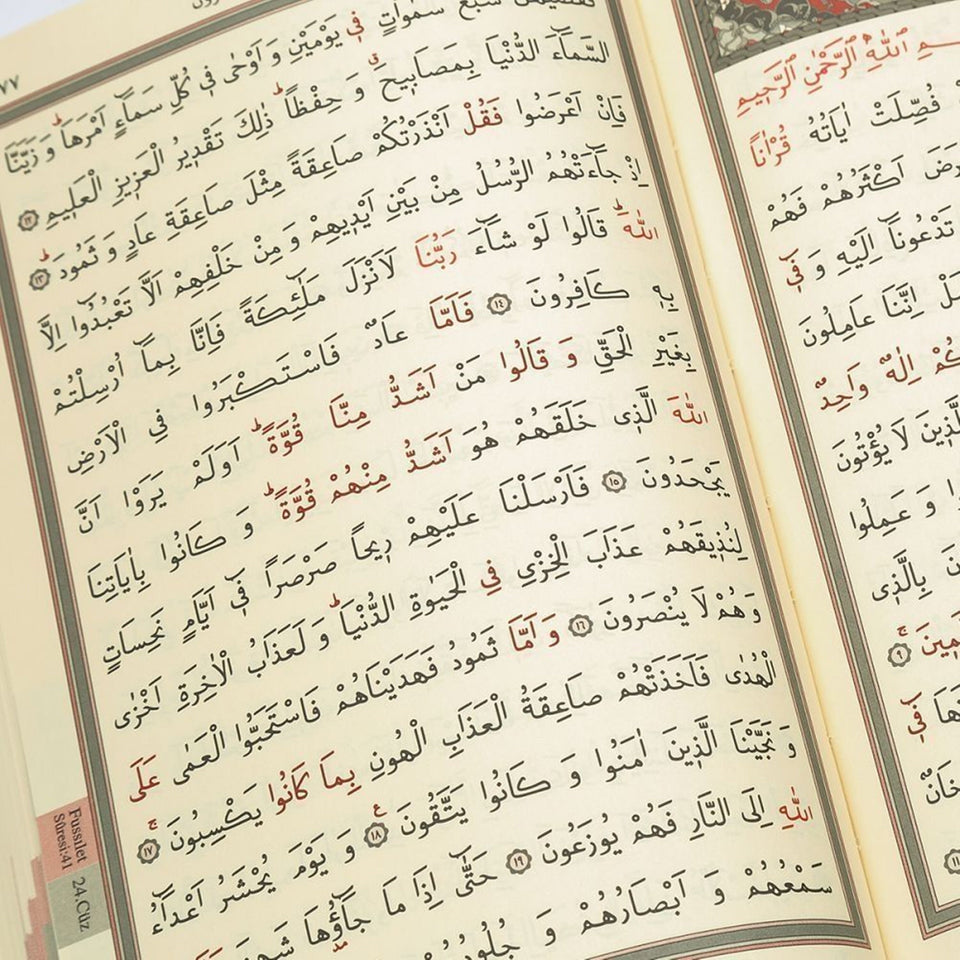 اللّٰهِ الرَّحْمٰنِ الرَّحِيمِ
فُصِّلَتْ اٰيَاتُهُ قُرْاٰناً
اَكْثَرُهُمْ فَهُمْ
تَدْعُونَٓا اِلَيْهِ وَ فِٓى
اِنَّنَا عَامِلُونَ
اِلٰهٌ وَاحِدٌ
لَا يُؤْتُونَ
وَ عَمِلُوا
بِالَّذِى
٩
فِٓى
١١
٧٧
سَبْعَ سَمٰوَاتٍ فِى يَوْمَيْنِ وَ اَوْحٰى فِى كُلِّ سَمَٓاءٍ اَمْرَهَاۜ وَ زَيَّنَّا
السَّمَٓاءَ الدُّنْيَا بِمَصَابِيحَۗ وَ حِفْظاًۜ ذٰلِكَ تَقْدِيرُ الْعَزِيزِ الْعَلِيمِ ١٢
فَاِنْ اَعْرَضُوا فَقُلْ اَنْذَرْتُكُمْ صَاعِقَةً مِثْلَ صَاعِقَةِ عَادٍ وَ ثَمُودَۜ ١٣
اِذْ جَٓاءَتْهُمُ الرُّسُلُ مِنْ بَيْنِ اَيْدِيهِمْ وَ مِنْ خَلْفِهِمْ اَلَّا تَعْبُدُٓوا اِلَّا
اللّٰهَۜ قَالُوا لَوْ شَٓاءَ رَبُّنَا لَاَنْزَلَ مَلٰٓئِكَةً فَاِنَّا بِمَٓا اُرْسِلْتُمْ
بِهِ كَافِرُونَ ١٤ فَاَمَّا عَادٌ فَاسْتَكْبَرُوا فِى الْاَرْضِ
بِغَيْرِ الْحَقِّ وَ قَالُوا مَنْ اَشَدُّ مِنَّا قُوَّةًۜ اَوَلَمْ يَرَوْا اَنَّ
اللّٰهَ الَّذِى خَلَقَهُمْ هُوَ اَشَدُّ مِنْهُمْ قُوَّةًۜ وَ كَانُوا بِاٰيَاتِنَا
يَجْحَدُونَ ١٥ فَاَرْسَلْنَا عَلَيْهِمْ رِيحاً صَرْصَراً فِٓى اَيَّامٍ نَحِسَاتٍ
لِنُذِيقَهُمْ عَذَابَ الْخِزْىِ فِى الْحَيٰوةِ الدُّنْيَاۜ وَ لَعَذَابُ الْاٰخِرَةِ اَخْزٰى
وَهُمْ لَا يُنْصَرُونَ ١٦ وَ اَمَّا ثَمُودُ فَهَدَيْنَاهُمْ فَاسْتَحَبُّوا الْعَمٰى عَلَى
الْهُدٰى فَاَخَذَتْهُمْ صَاعِقَةُ الْعَذَابِ الْهُونِ بِمَا كَانُوا يَكْسِبُونَۚ ١٧
وَ نَجَّيْنَا الَّذِينَ اٰمَنُوا وَ كَانُوا يَتَّقُونَ ١٨ وَ يَوْمَ يُحْشَرُ اَعْدَٓاءُ
اللّٰهِ اِلَى النَّارِ فَهُمْ يُوزَعُونَ ١٩ حَتّٰٓى اِذَا مَا جَٓاؤُ۫هَا
سَمْعُهُمْ وَ اَبْصَارُهُمْ وَ
Fussilet
Sûresi:41
24.Cüz